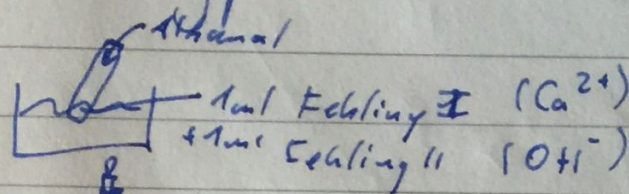 Ethanal
1ml Fehling I (Ca²⁺)
+1ml Fehling II (OH⁻)